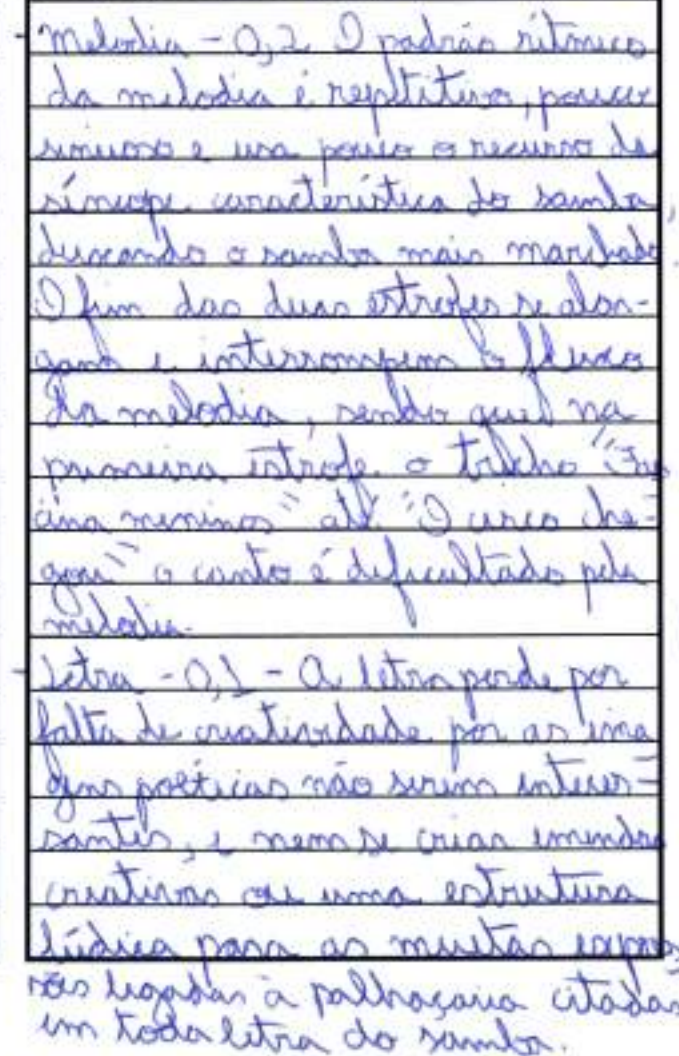 - Melodia - 0,2 O padrão rítmico
da melodia é repetitivo, pouco
sinuoso e usa pouco o recurso da
síncope característica do samba,
deixando o samba mais marchado.
O fim das duas estrofes se alon-
gam e interrompem o fluxo
da melodia, sendo que na
primeira estrofe o trecho "Fas
cina meninos" até "O circo che-
gou" o canto é dificultado pela
melodia.
- Letra - 0,1 - A letra perde por
falta de criatividade por as ima
gens poéticas não serem interes-
santes, e nem se criar emendas
creativas ou uma estrutura
lúdica para as muitas expres
sões ligadas à palhaçaria citadas
em toda letra do samba.